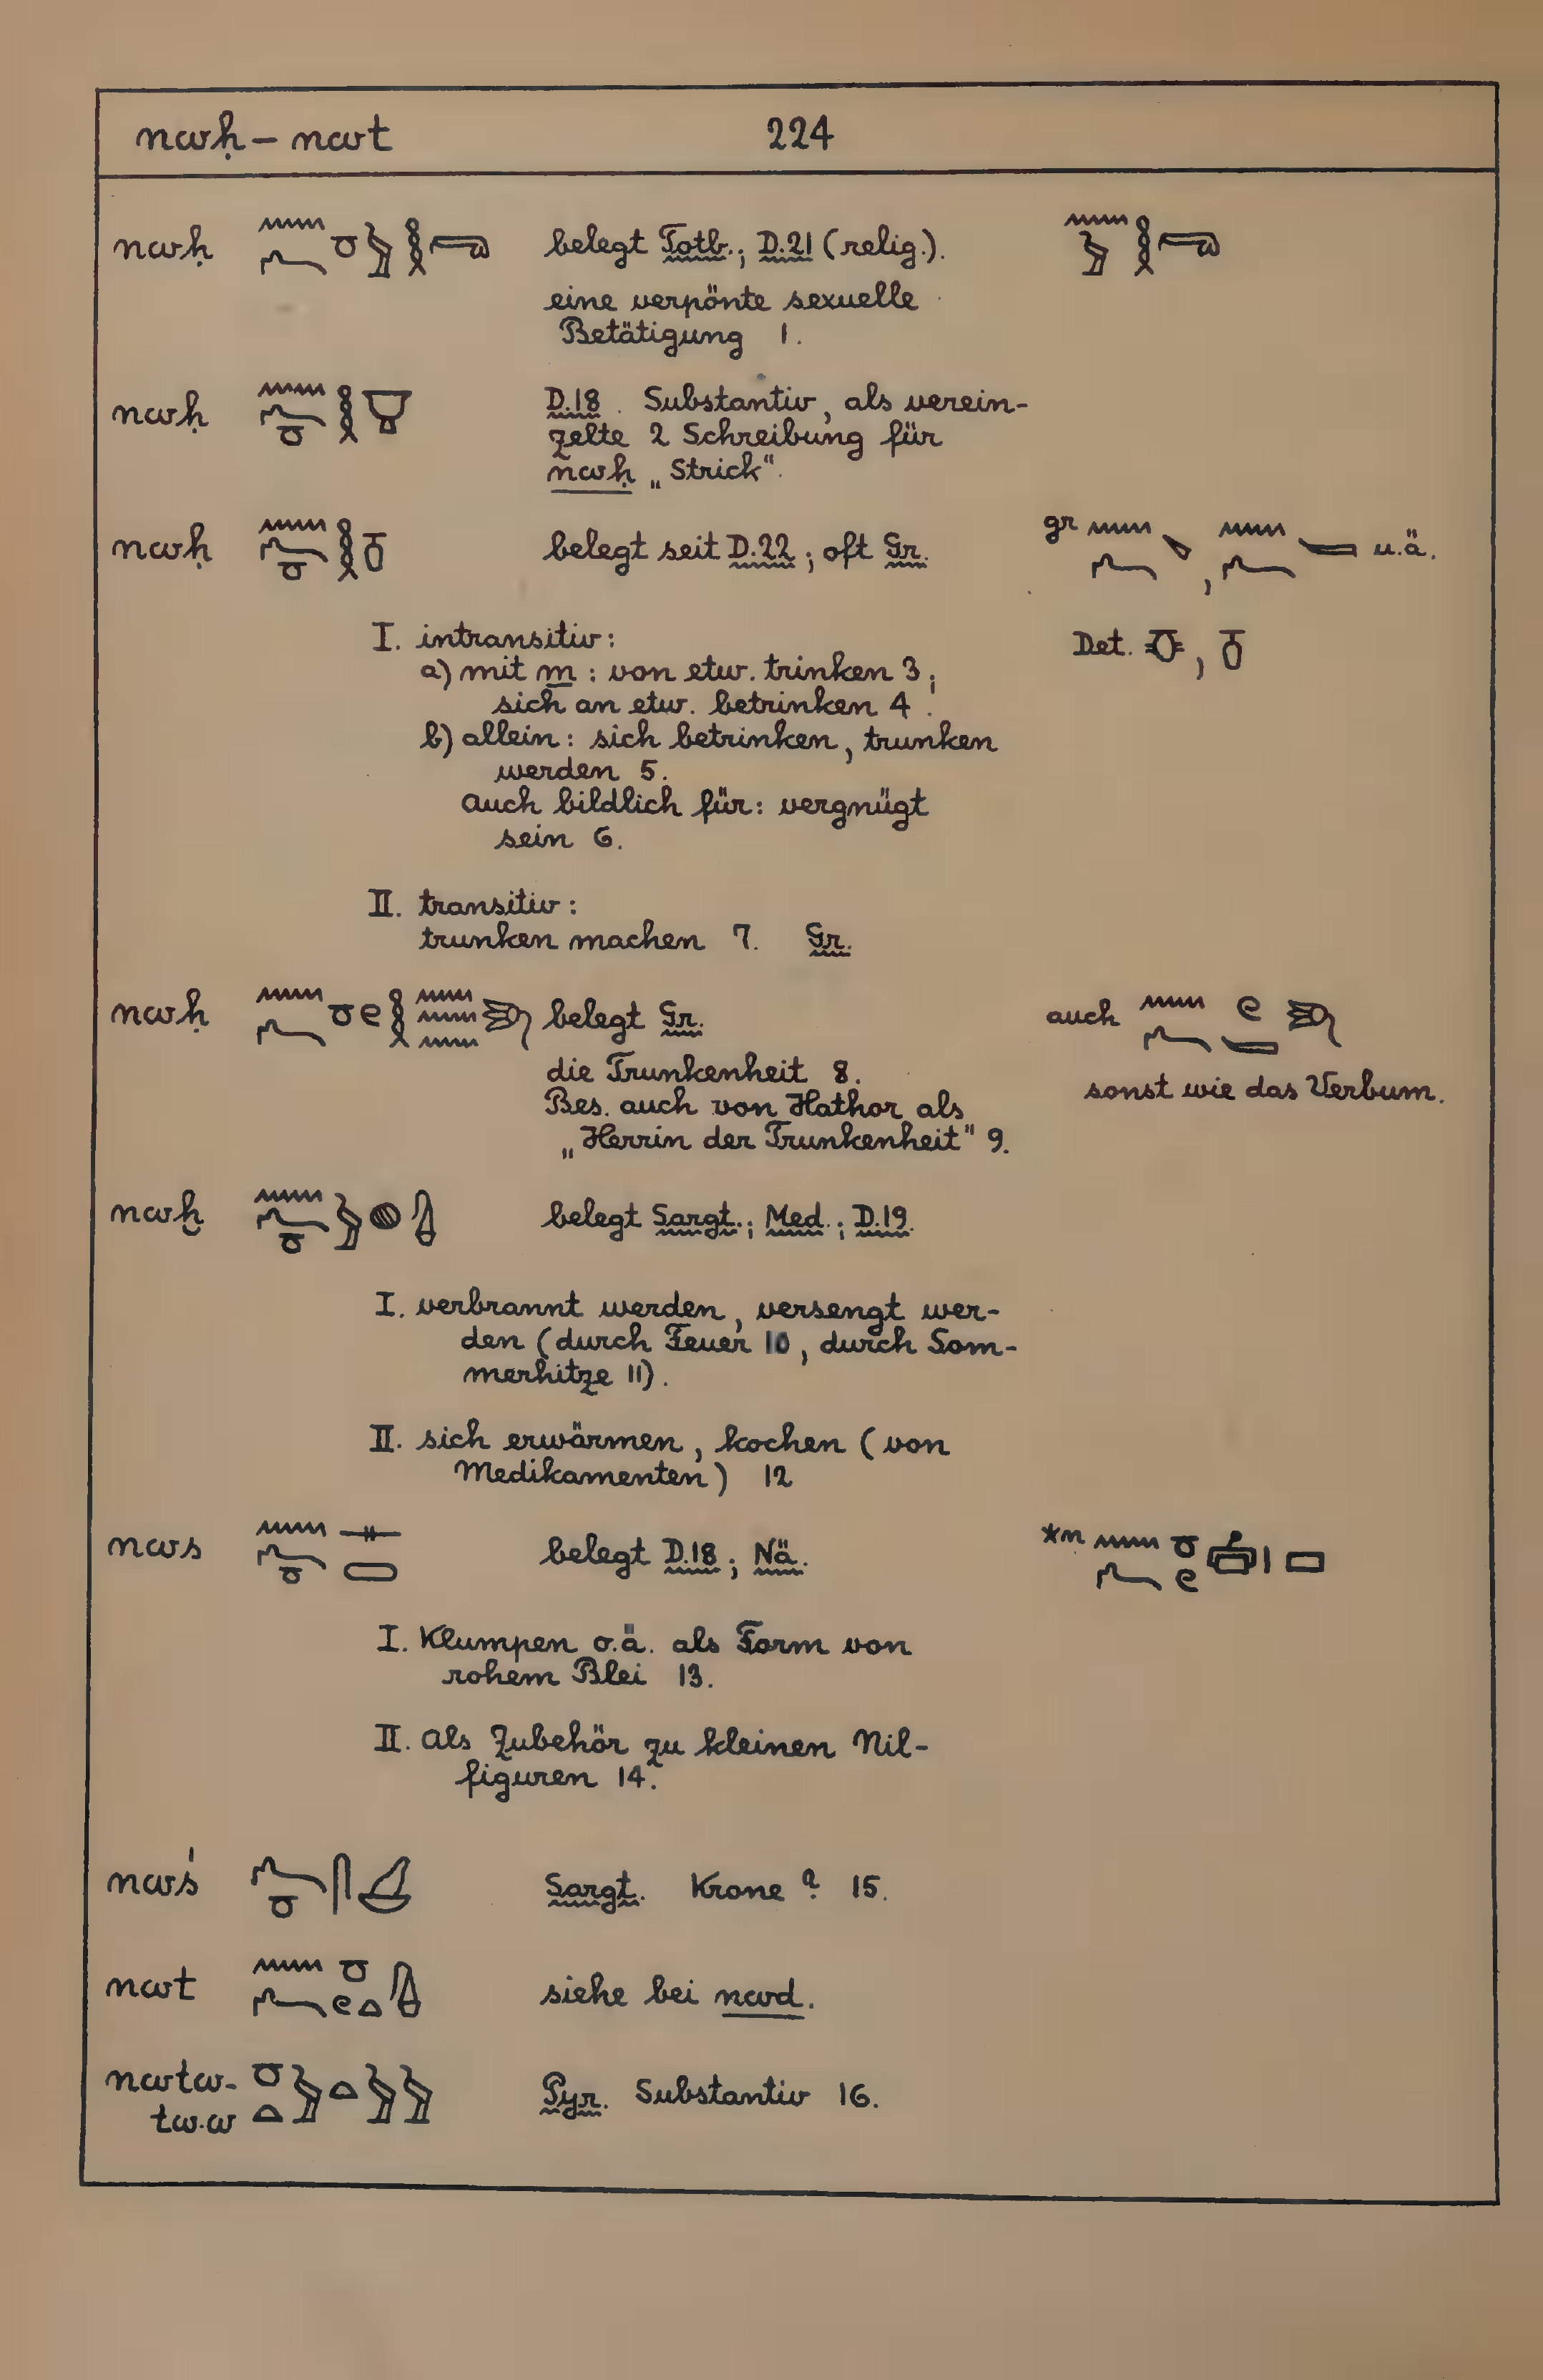 nwḥ – nwt 224
nwḥ belegt Totb.; D.21 (relig.).
eine verpönte sexuelle
Betätigung 1.
nwḥ D.18. Substantiv, als verein-
zelte 2 Schreibung für
nwḥ „Strick“.
nwḥ belegt seit D.22; oft Gr. gr , u.ä.
I. intransitiv: Det. ,
a) mit m : von etw. trinken 3;
sich an etw. betrinken 4.
b) allein: sich betrinken, trunken
werden 5.
auch bildlich für: vergnügt
sein 6.
II. transitiv:
trunken machen 7. Gr.
nwḥ belegt Gr. auch
die Trunkenheit 8. sonst wie das Verbum.
Bes. auch von Hathor als
„Herrin der Trunkenheit“ 9.
nwḫ belegt Sargt.; Med.; D.19.
I. verbrannt werden, versengt wer-
den (durch Feuer 10, durch Som-
merhitze 11).
II. sich erwärmen, kochen (von
Medikamenten) 12
nws belegt D.18; Nä. *m
I. Klumpen o.ä. als Form von
rohem Blei 13.
II. als Zubehör zu kleinen Nil-
figuren 14.
nwś Sargt. Krone ? 15.
nwt siehe bei nwd.
nwtw- Pyr. Substantiv 16.
tw.w